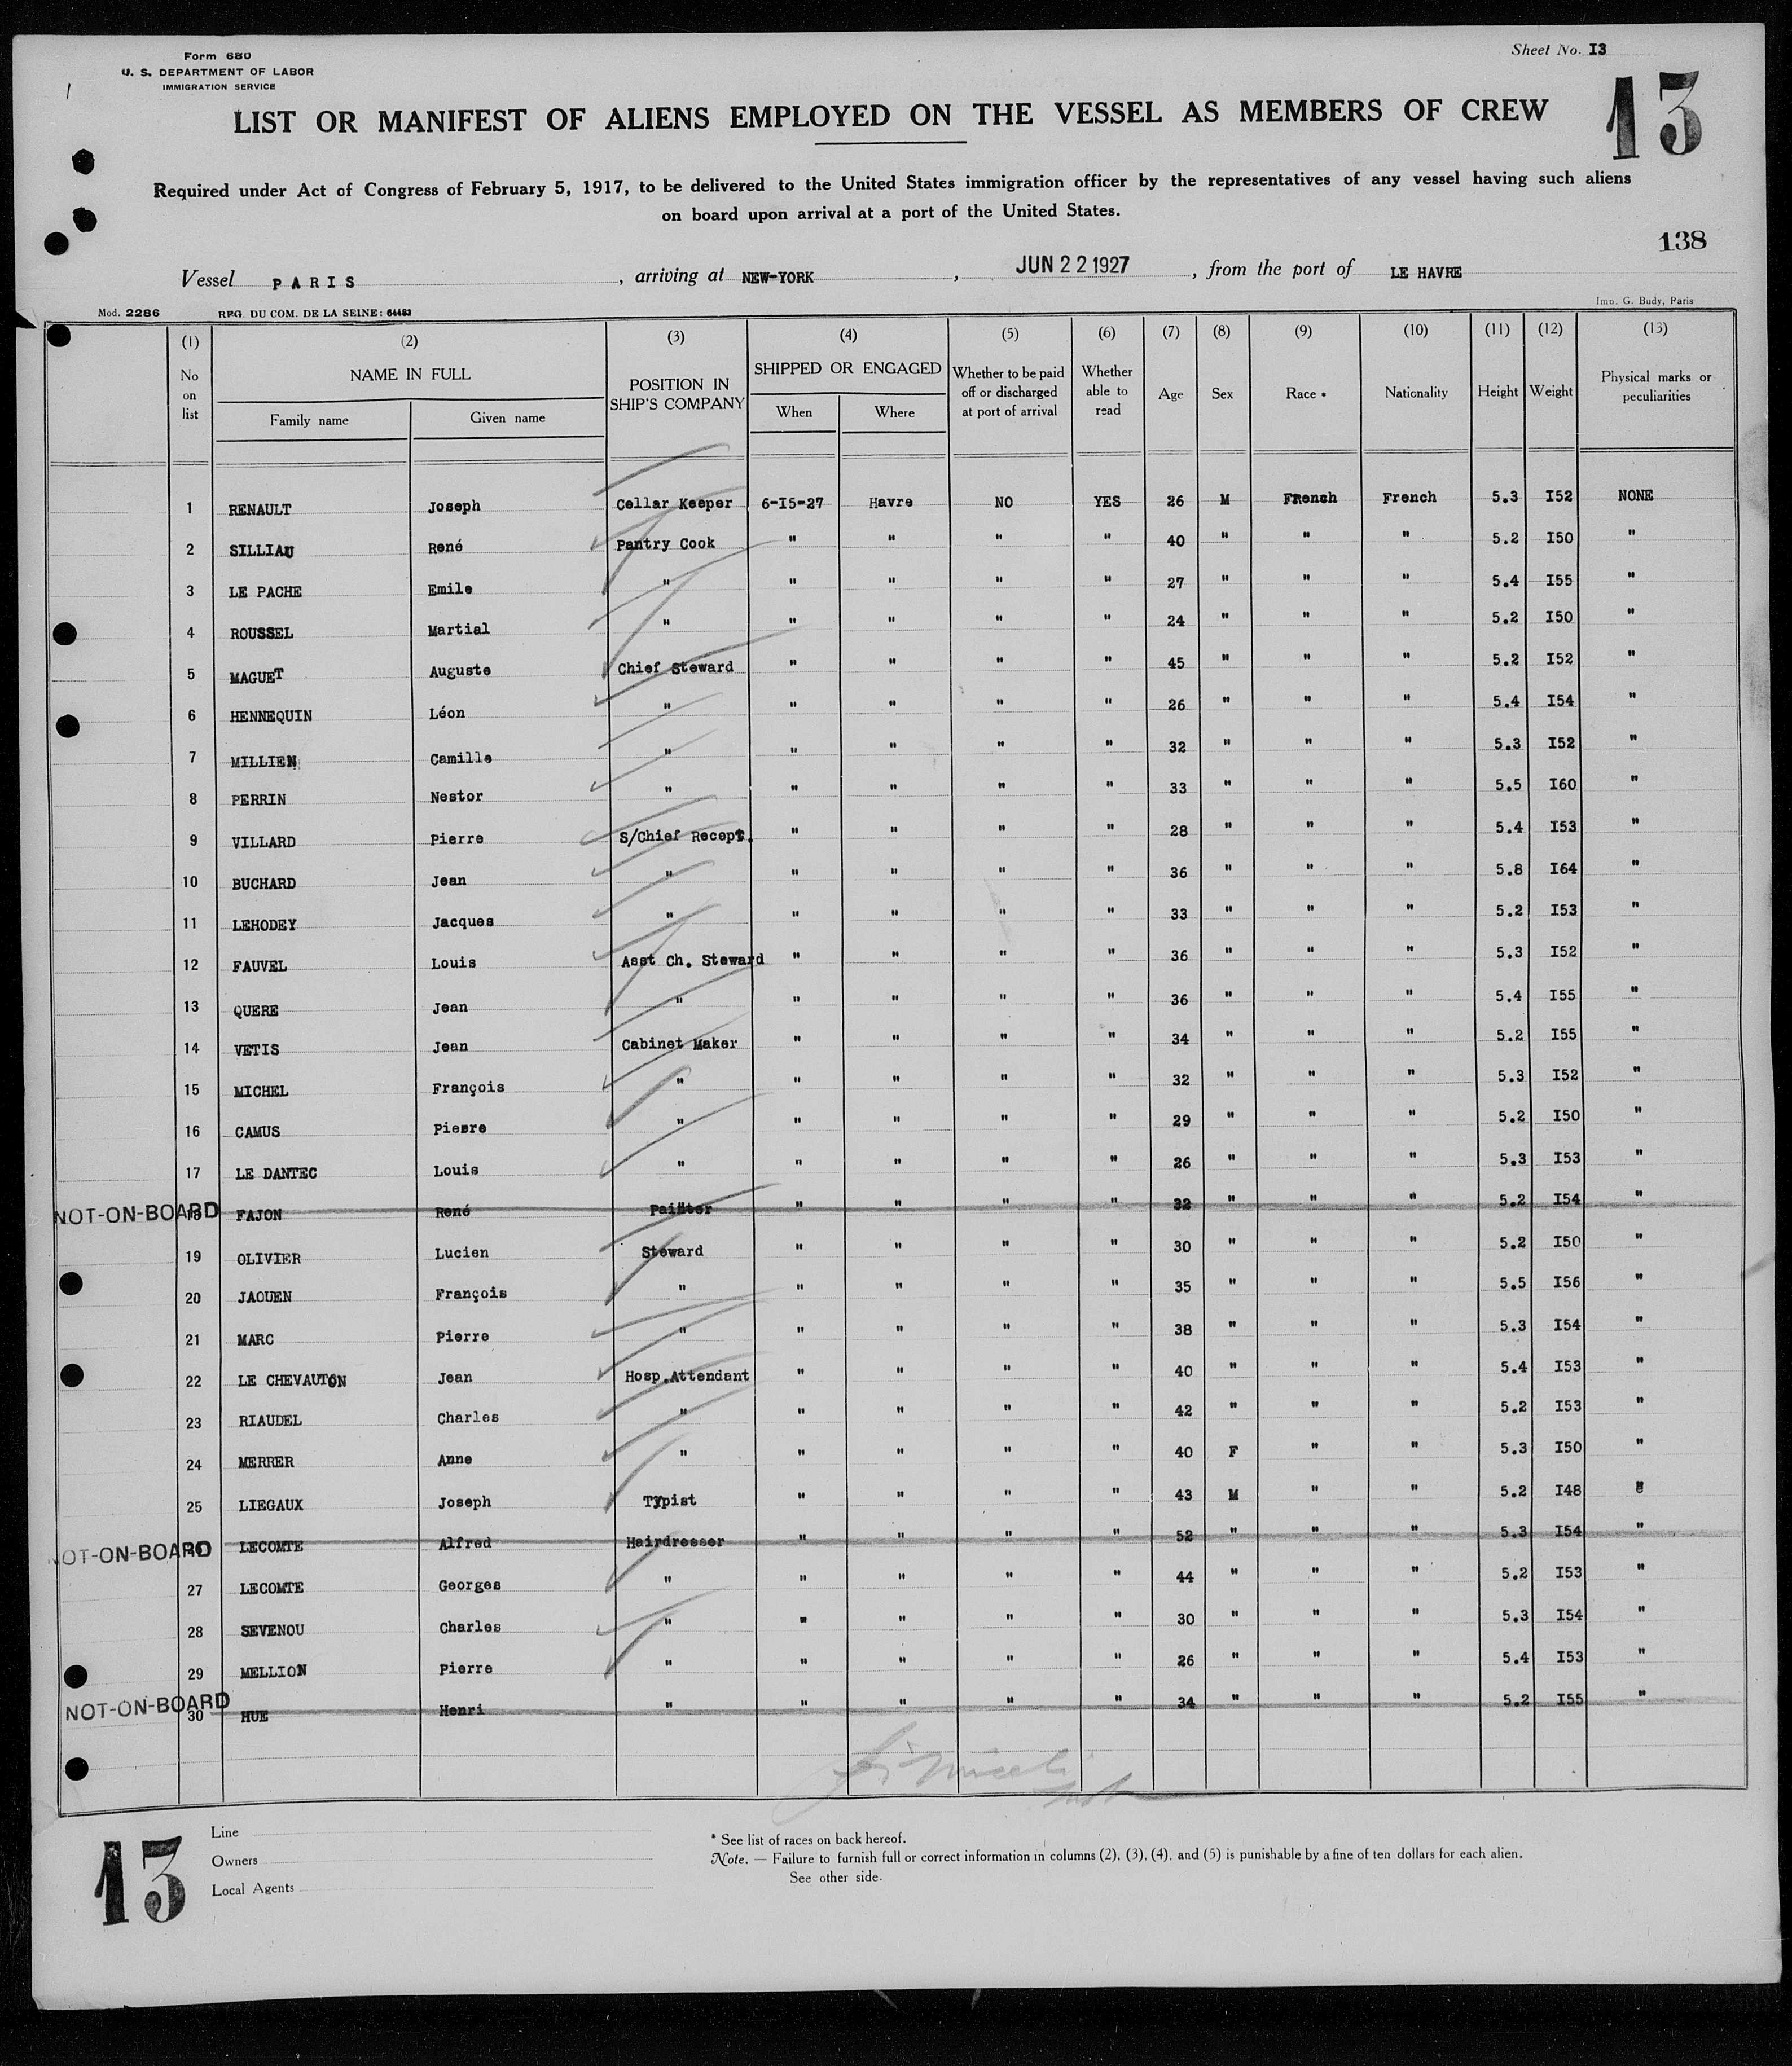 Form 680
U. S. DEPARTMENT OF LABOR
IMMIGRATION SERVICE
Sheet No. I3
13
LIST OR MANIFEST OF ALIENS EMPLOYED ON THE VESSEL AS MEMBERS OF CREW
Required under Act of Congress of February 5, 1917, to be delivered to the United States immigration officer by the representatives of any vessel having such aliens
on board upon arrival at a port of the United States.
138
Vessel PARIS, arriving at NEW-YORK, JUN 22 1927, from the port of LE HAVRE
Mod. 2286 REG. DU COM. DE LA SEINE: 64483 Imp. G. Budy, Paris
(1) (2) (3) (4) (5) (6) (7) (8) (9) (10) (11) (12) (13)
No on list NAME IN FULL Family name Given name POSITION IN SHIP'S COMPANY SHIPPED OR ENGAGED When Where Whether to be paid off or discharged at port of arrival Whether able to read Age Sex Race * Nationality Height Weight Physical marks or peculiarities
1 RENAULT Joseph Cellar Keeper 6-I5-27 Havre NO YES 26 M French French 5.3 I52 NONE
2 SILLIAU René Pantry Cook " " " " 40 " " " 5.2 I50 "
3 LE PACHE Emile " " " " " 27 " " " 5.4 I55 "
4 ROUSSEL Martial " " " " " 24 " " " 5.2 I50 "
5 MAGUET Auguste Chief Steward " " " " 45 " " " 5.2 I52 "
6 HENNEQUIN Léon " " " " " 26 " " " 5.4 I54 "
7 MILLIEN Camille " " " " " 32 " " " 5.3 I52 "
8 PERRIN Nestor " " " " " 33 " " " 5.5 I60 "
9 VILLARD Pierre S/Chief Recept. " " " " 28 " " " 5.4 I53 "
10 BUCHARD Jean " " " " " 36 " " " 5.8 I64 "
11 LEHODEY Jacques " " " " " 33 " " " 5.2 I53 "
12 FAUVEL Louis Asst Ch. Steward " " " " 36 " " " 5.3 I52 "
13 QUERE Jean " " " " " 36 " " " 5.4 I55 "
14 VETIS Jean Cabinet Maker " " " " 34 " " " 5.2 I55 "
15 MICHEL François " " " " " 32 " " " 5.3 I52 "
16 CAMUS Pierre " " " " " 29 " " " 5.2 I50 "
17 LE DANTEC Louis " " " " " 26 " " " 5.3 I53 "
NOT-ON-BOARD 18 FAJON René Painter " " " " 32 " " " 5.2 I54 "
19 OLIVIER Lucien Steward " " " " 30 " " " 5.2 I50 "
20 JAOUEN François " " " " " 35 " " " 5.5 I56 "
21 MARC Pierre " " " " " 38 " " " 5.3 I54 "
22 LE CHEVAUTON Jean Hosp.Attendant " " " " 40 " " " 5.4 I53 "
23 RIAUDEL Charles " " " " " 42 " " " 5.2 I53 "
24 MERRER Anne " " " " " 40 F " " 5.3 I50 "
25 LIEGAUX Joseph Typist " " " " 43 M " " 5.2 I48 "
NOT-ON-BOARD LECOMTE Alfred Hairdresser " " " " 52 " " " 5.3 I54 "
27 LECOMTE Georges " " " " " 44 " " " 5.2 I53 "
28 SEVENOU Charles " " " " " 30 " " " 5.3 I54 "
29 MELLION Pierre " " " " " 26 " " " 5.4 I53 "
NOT-ON-BOARD 30 HUE Henri " " " " " 34 " " " 5.2 I55 "
13
Line
Owners
Local Agents
* See list of races on back hereof.
Note. — Failure to furnish full or correct information in columns (2), (3), (4), and (5) is punishable by a fine of ten dollars for each alien.
See other side.